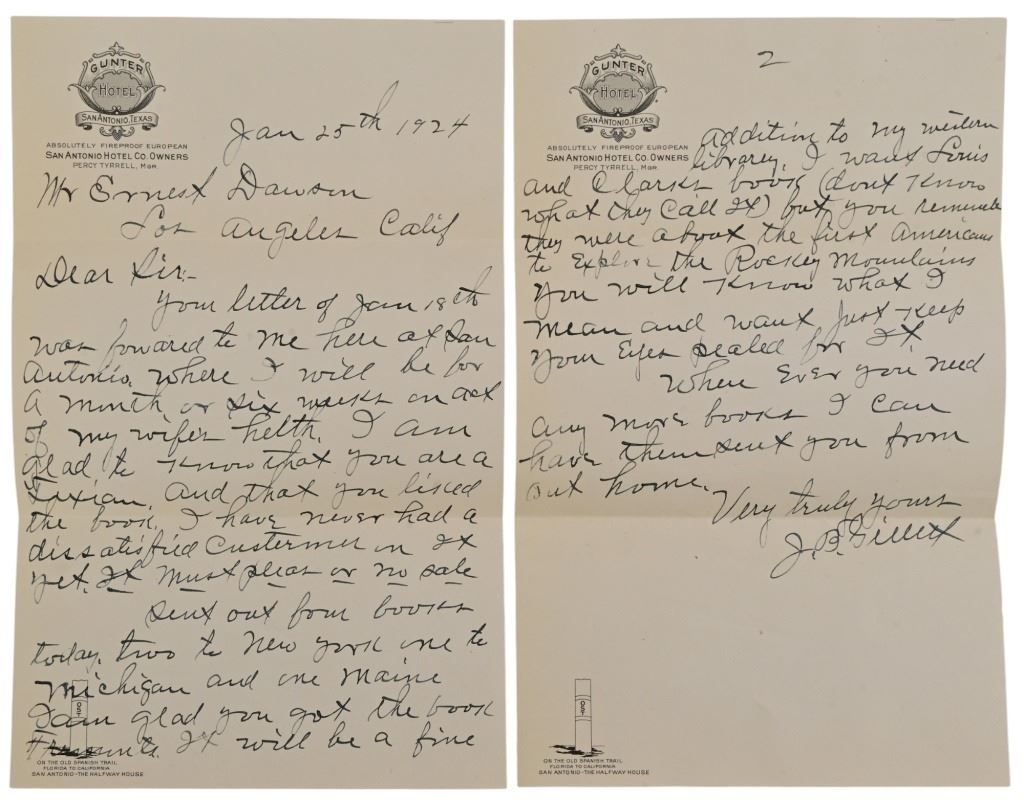 GUNTER
HOTEL
SAN ANTONIO, TEXAS
ABSOLUTELY FIREPROOF EUROPEAN
SAN ANTONIO HOTEL CO. OWNERS
PERCY TYRRELL, MGR.
Jan 25th 1924
Mr Ernest Dawson
Los Angeles Calif
Dear Sir:-
Your letter of Jan 18th
was fowared to me here at San
Antonio, where I will be for
a month or six weeks on act
of my wifes helth. I am
glad to know that you are a
Texian, and that you liked
the book. I have never had a
dissatisfied Custermer on It
yet. It must pleas or no sale
Sent out four books
today, two to New York one to
Michigan and one Maine
I am glad you got the book
It will be a fine
OST
ON THE OLD SPANISH TRAIL
FLORIDA TO CALIFORNIA
SAN ANTONIO - THE HALFWAY HOUSE
2
GUNTER
HOTEL
SAN ANTONIO, TEXAS
ABSOLUTELY FIREPROOF EUROPEAN
SAN ANTONIO HOTEL CO. OWNERS
PERCY TYRRELL, MGR.
addition to my western
librarey. I want Louis
and Clarks book (dont know
what they Call It) but you
they were about the first Americans
to Explore the Rockey Mountains
You will know what I
mean and want Just Keep
Your Eyes pealed for It
When Ever you need
any more books I can
have them sent you from
out home.
Very truly yours
J. B. Gillett
OST
ON THE OLD SPANISH TRAIL
FLORIDA TO CALIFORNIA
SAN ANTONIO - THE HALFWAY HOUSE